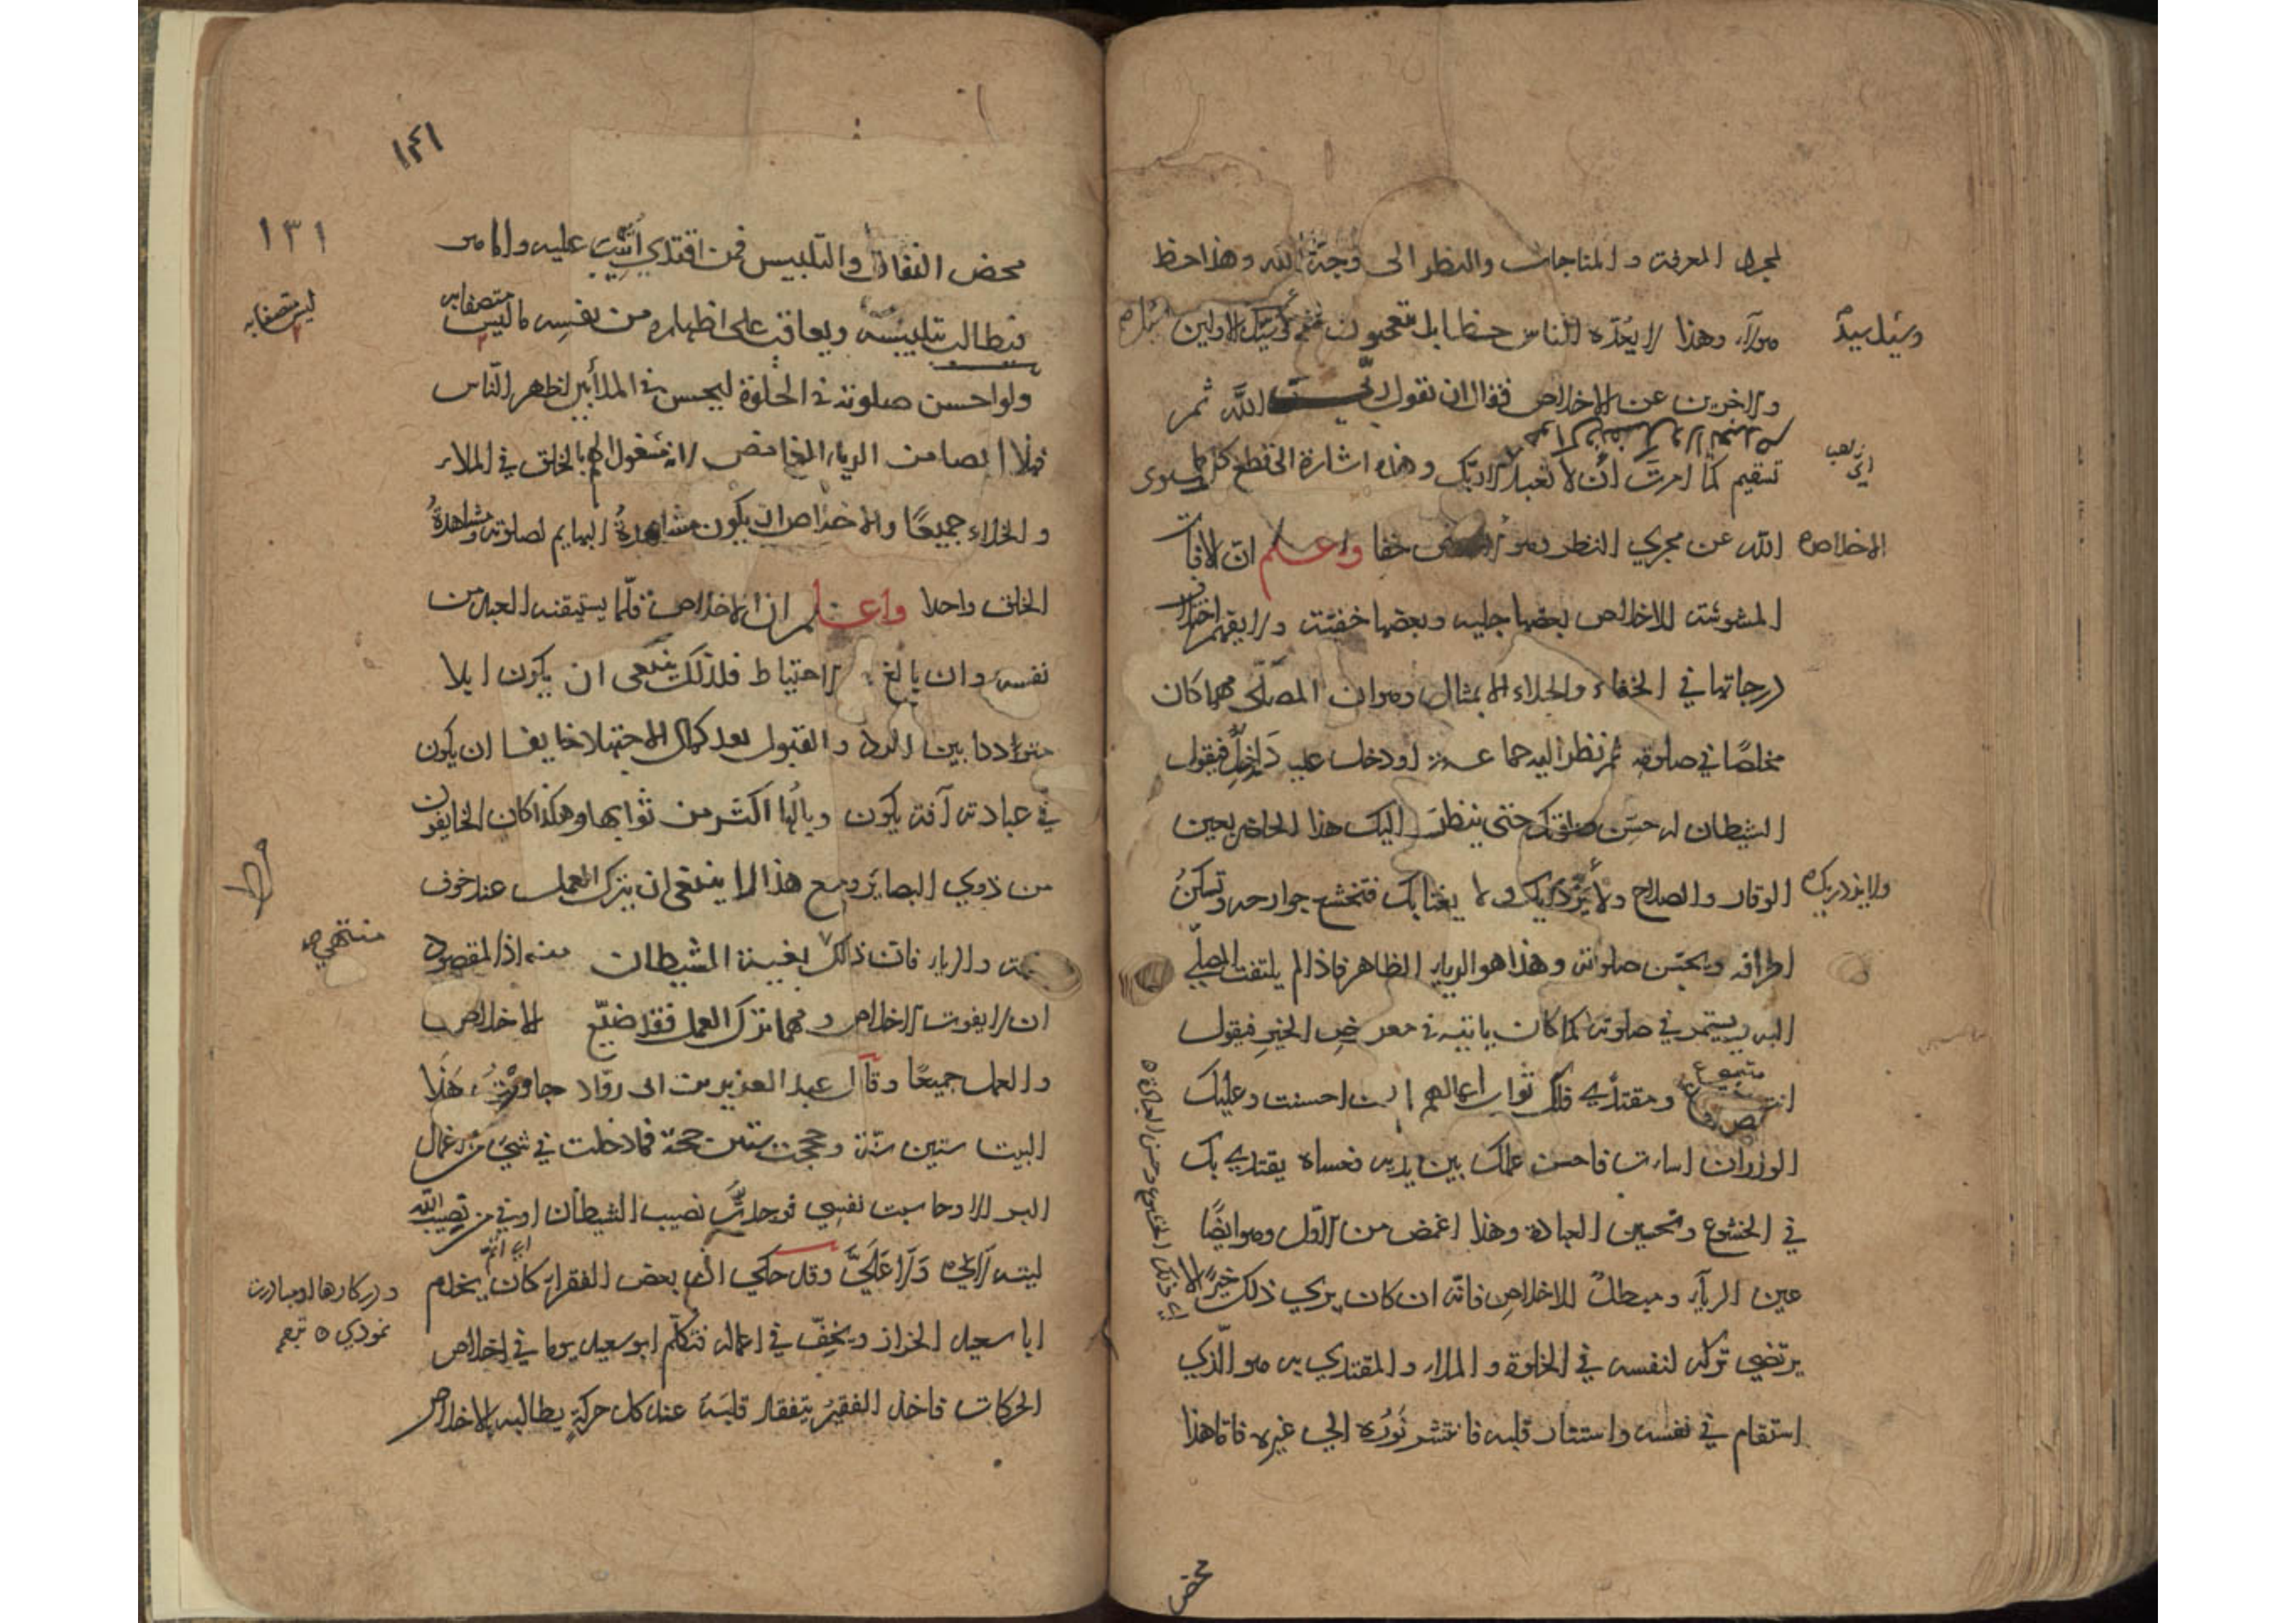 لمجرد المعرفة والمناجات والنظر الى وجه الله وهذا حظ
هولاء وهذا لا يعده الناس حظا بل يتعجبون منه وسئل سيد الاولين
وسيل سيد
والاخرين عن الاخلاص فقال ان تقول ربي الله ثم
تستقيم كما امرت أن لا تعبد الا ربك وهذه اشارة الى قطع كل ما سوى
الله عن مجري النظر وهو الاخلاص حقا واعلم ان الافات
الاخلاص
المشوشة للاخلاص بعضها جليه وبعضها خفية ولا يفهم اختلاف
درجاتها في الخفاء والجلاء الا بمثال وهو ان المصلّى مهما كان
مخلصًا في صلوته ثم نظر اليه جماعة او دخل عليه داخل فيقول
الشيطان له حسّن صلوتك حتى ينظر اليك هذا الحاضر بعين
الوقار والصلاح ولا يزدريك ولا يغتابك فتخشع جوارحه وتسكنُ
ولا يزدريك
اطرافه ويحسّن صلوته وهذا هو الرياء الظاهر فاذا لم يلتفت المصلّي
اليه ويستمر في صلوته كما كان ياتيه في معرض الخير فيقول
انت متبوع ومقتدي بك فلك ثواب اعمالهم ان احسنت وعليك
الوزر ان اسات فاحسن عملك بين يديه فعساه يقتدي بك
في الخشوع وتحسين العبادة وهذا اغمض من الاول وهو ايضًا
عين الرياء ومبطلٌ للاخلاص فانّه ان كان يري ذلك خيرًا لا
اي ذلك الخشوع وحسن العبادة
يرتضي تركه لنفسه في الخلوة والملاء والمقتدي به هو الّذي
استقام في نفسه واستنار قلبه فانتشر نوره الي غيره فاما هذا
محض
١٤١
١٣١
محض النفاق والتلبيس فمن اقتدي أثيب عليه واما هو
فيطالب بتلبيسه ويعاقب على اظهاره من نفسه ما ليس متصفا به
ليس متصفا به
ولو احسن صلوته في الخلوة ليحسن في الملأ بين اظهر النّاس
فهذا ايضا من الرياء الغامض لانه مشغول الهم بالخلق في الملاء
والخلاء جميعًا والاخلاص ان يكون مشاهدةُ البهايم لصلوته ومشاهدةُ
الخلق واحدا واعلم ان الاخلاص قلّما يستيقنه العبد من
نفسه وان بالغ الاحتياط فلذلك ينبغى ان يكون ابدا
مترددا بين الرد والقبول بعد كمال الاجتهاد خايفا ان يكون
في عبادته آفة يكون وبالُها اكثر من ثوابها وهكذا كان الخايفون
من ذوي البصاير ومع هذا لا ينبغى ان يترك العمل عند خوف
والرياء فان ذلك بغية الشيطان منه اذ المقصود
ان لا يفوت الاخلاص ومهما ترك العمل فقد ضيّع الاخلاص
والعمل جميعًا وقال عبد العزيز بن ابى روّاد جاورت هذا
البيت ستين سنة وحججت ستين حجة فما دخلت في شيء من اعمال
البر الا وحاسبت نفسي فوجدت نصيب الشيطان اوفي من نصيب الله
ليته لا لي ولا عَلَيَّ وقد حكي ان بعض الفقراء كان يخدم
ابا سعيد الخراز ويخفّ في اعماله فتكلّم ابو سعيد يوما في اخلاص
الحركات فاخذ الفقير يتفقد قلبه عند كل حركةٍ يطالبه بالاخلاص